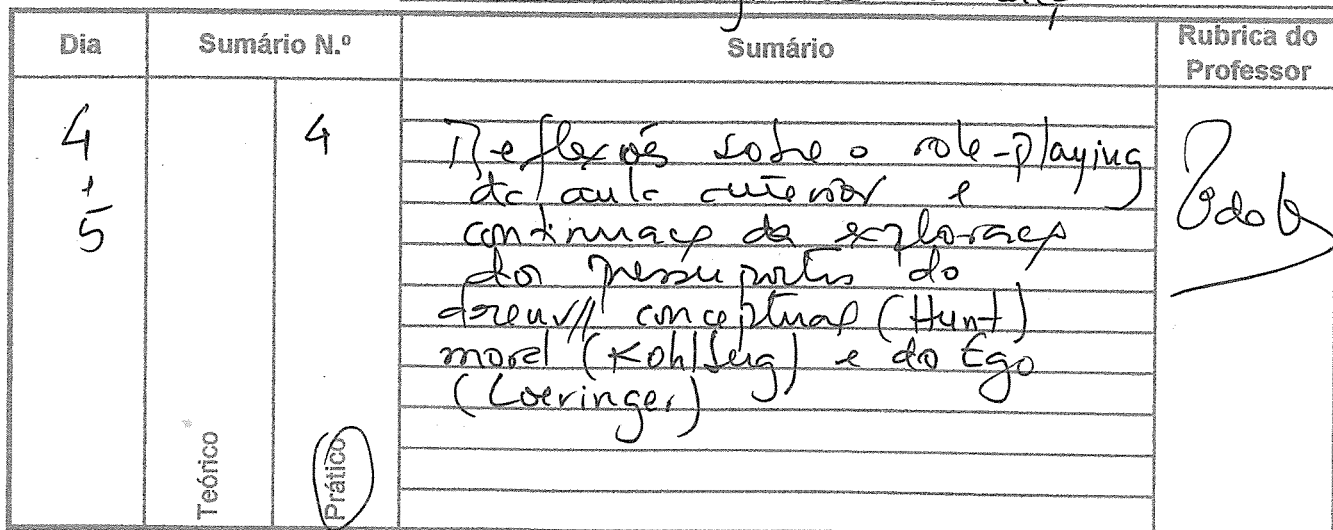 Dia
Sumário N.º
Sumário
Rubrica do
Professor
4
5
4
Reflexões sobre o role-playing
da aula anterior e
continuação da exploração
dos pressupostos do
desenv// conceptual (Hunt)
moral (Kohlberg) e do Ego
(Loevinger)
Teórico
Prático